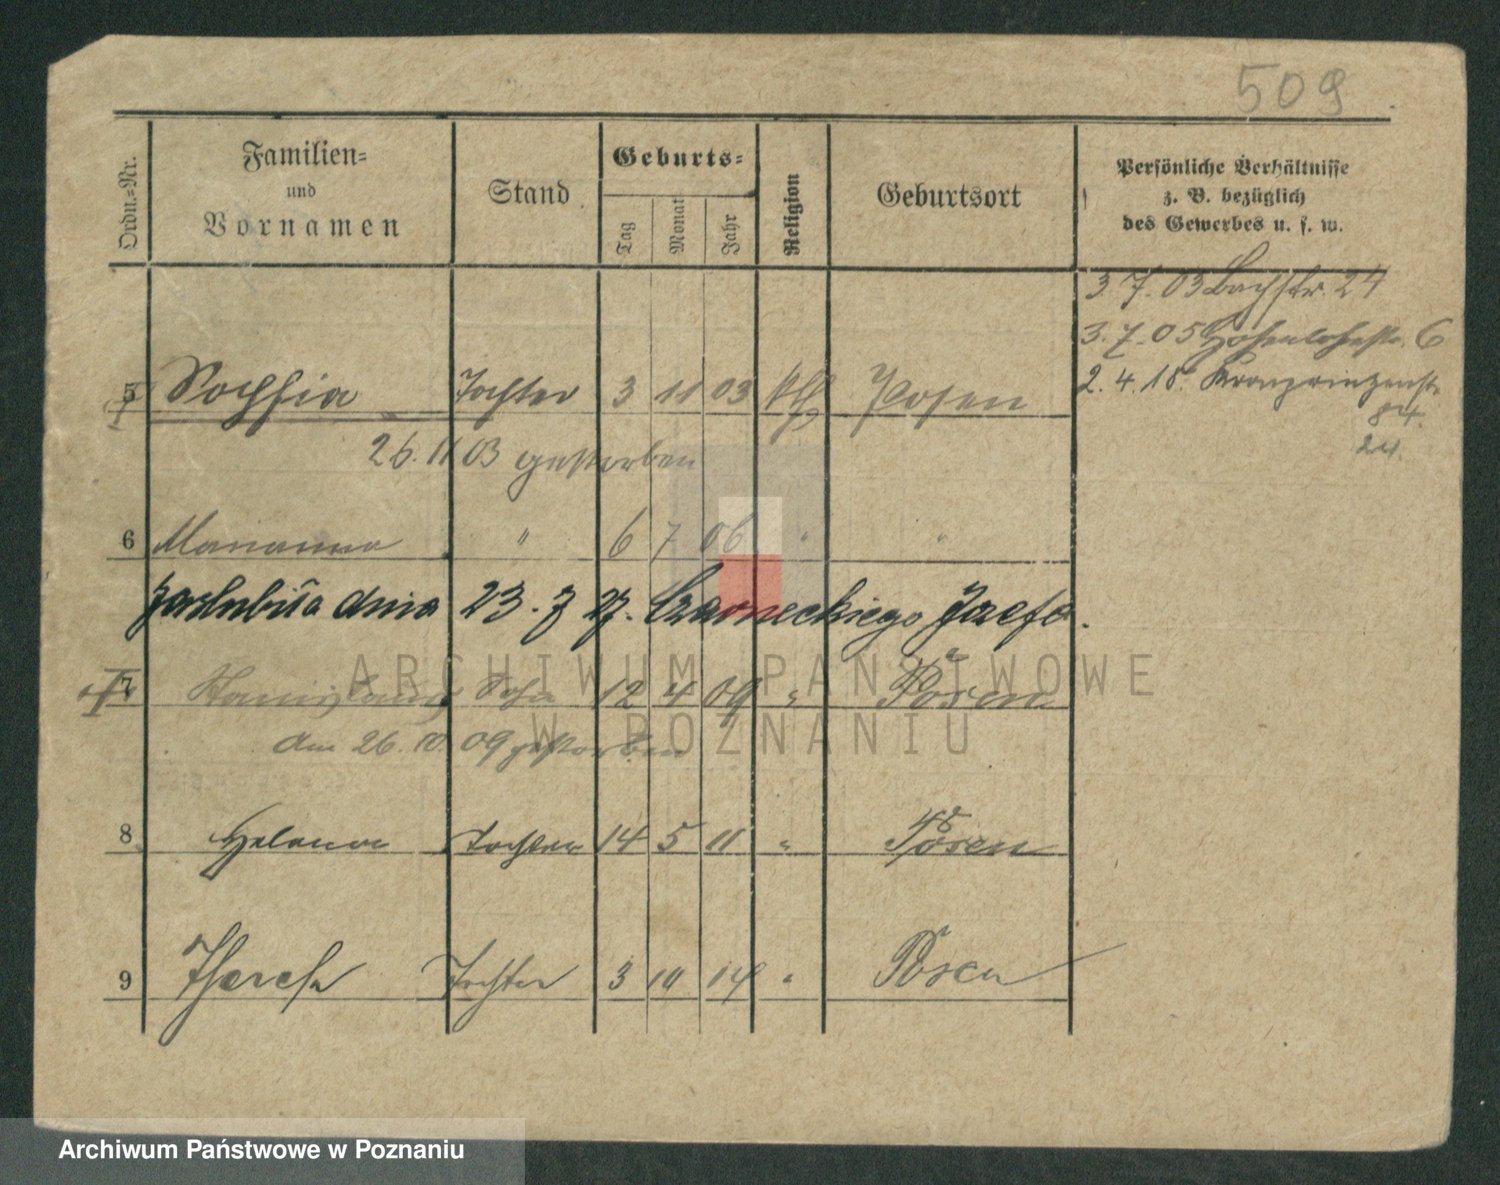 509
Ordn.=Nr.
Familien=
und
Vornamen
Stand
Geburts=
Tag
Monat
Jahr
Religion
Geburtsort
Persönliche Verhältnisse
z. B. bezüglich
des Gewerbes u. s. w.
3.7.03 Bachstr. 24
3.7.05 Hohenlohestr. 6
2.4.18. Kronprinzenstr.
84.
24.
5 Sophia Tochter 3 11 03 kth Posen
26.11 03 gestorben
6 Marianna " 6 7 06 " "
zaślubiła dnia 23. 7 27. Czarneckiego Józefa.
7 Stanislaus Sohn 12 4 09 " Posen
ARCHIWUM PAŃSTWOWE
W POZNANIU
am 26.10.09 gestorben
8 Helena Tochter 14 5 11 " Posen
9 Tochter 3 10 14 " Posen
Archiwum Państwowe w Poznaniu